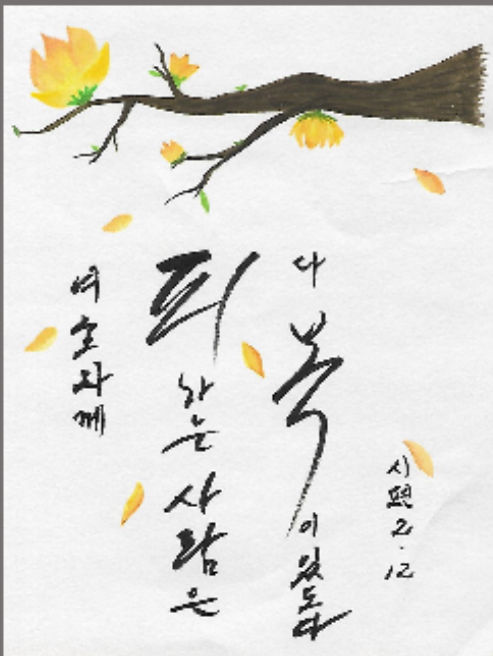 여호와께
피하는 사람은
다 복이 있도다
시편 2.12